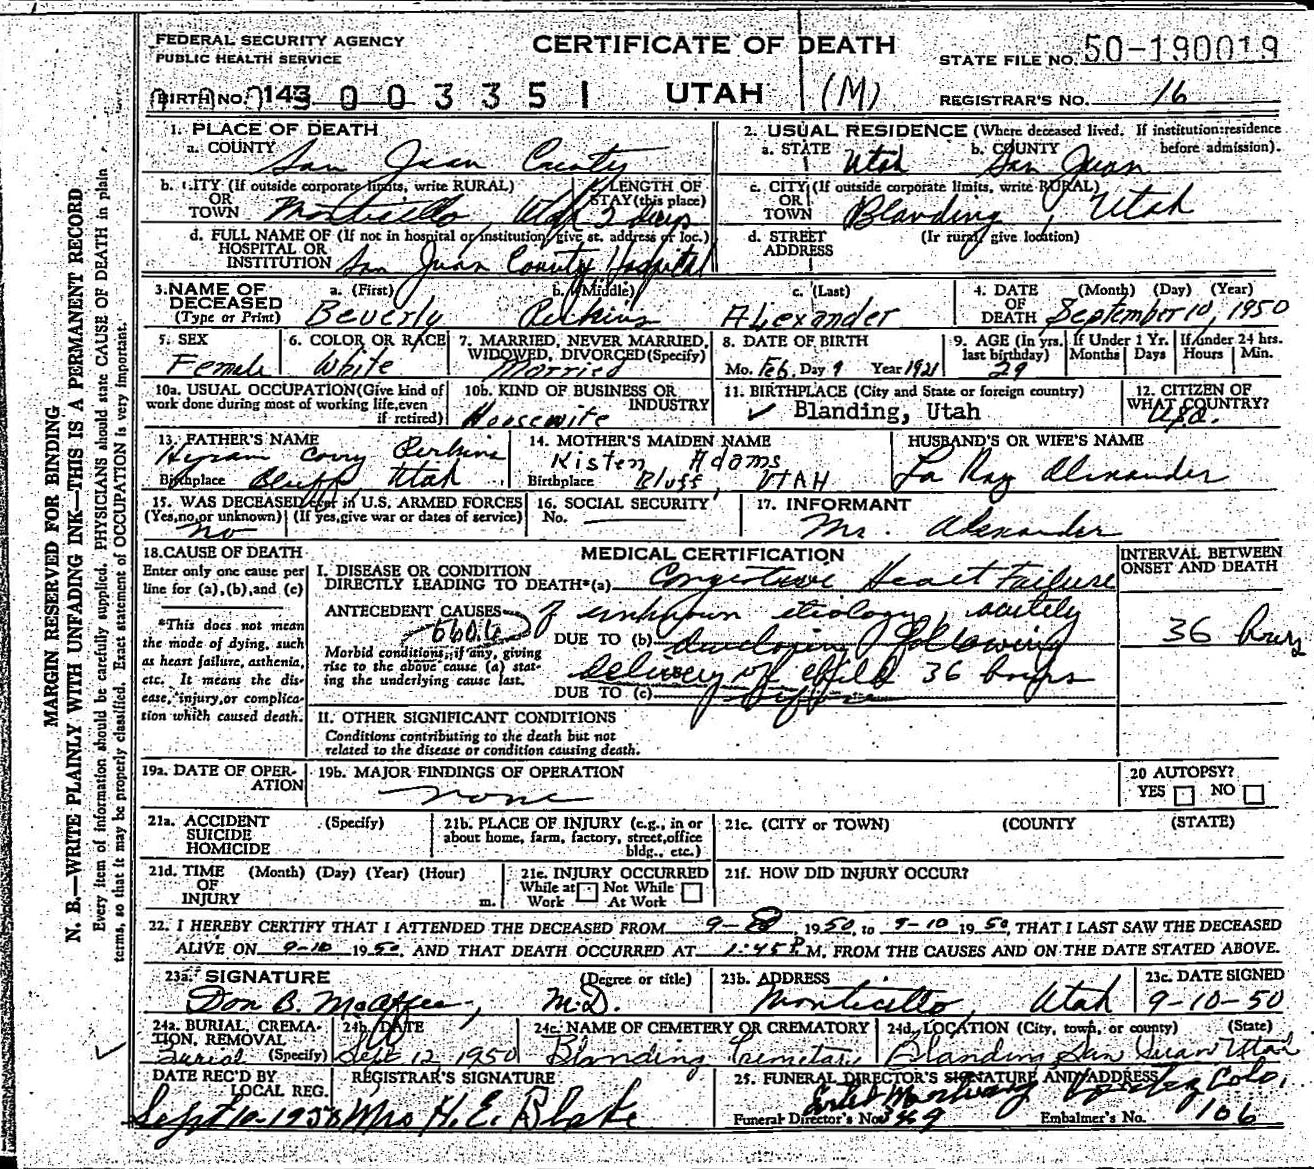 FEDERAL SECURITY AGENCY
PUBLIC HEALTH SERVICE
CERTIFICATE OF DEATH
STATE FILE NO. 50-190019
BIRTH NO. 143 003351
UTAH (M)
REGISTRAR'S NO. 16
1. PLACE OF DEATH
a. COUNTY San Juan County
2. USUAL RESIDENCE (Where deceased lived. If institution:residence before admission).
a. STATE Utah b. COUNTY San Juan
b. CITY (If outside corporate limits, write RURAL) OR TOWN Monticello, Utah
c. LENGTH OF STAY (this place) 2 days
c. CITY (If outside corporate limits, write RURAL) OR TOWN Blanding, Utah
d. FULL NAME OF (If not in hospital or institution, give st. address or loc.)
HOSPITAL OR INSTITUTION San Juan County Hospital
d. STREET ADDRESS (If rural, give location)
3. NAME OF DECEASED (Type or Print)
a. (First) b. (Middle) c. (Last)
Beverly Perkins Alexander
4. DATE OF DEATH (Month) (Day) (Year)
September 10, 1950
5. SEX
Female
6. COLOR OR RACE
White
7. MARRIED, NEVER MARRIED, WIDOWED, DIVORCED (Specify)
Married
8. DATE OF BIRTH
Mo. Feb. Day 9 Year 1921
9. AGE (In yrs. last birthday) 29
If Under 1 Yr. Months Days
If under 24 hrs. Hours Min.
10a. USUAL OCCUPATION (Give kind of work done during most of working life, even if retired)
10b. KIND OF BUSINESS OR INDUSTRY
Housewife
11. BIRTHPLACE (City and State or foreign country)
✓ Blanding, Utah
12. CITIZEN OF WHAT COUNTRY?
USA.
13. FATHER'S NAME
Hyram Corry Perkins
Birthplace Bluff, Utah
14. MOTHER'S MAIDEN NAME
Kisten Adams
Birthplace Bluff, UTAH
HUSBAND'S OR WIFE'S NAME
La Ray Alexander
15. WAS DECEASED ever in U.S. ARMED FORCES
(Yes, no, or unknown) (If yes, give war or dates of service)
No
16. SOCIAL SECURITY
No.
17. INFORMANT
Mr. Alexander
18. CAUSE OF DEATH
Enter only one cause per line for (a), (b), and (c)
*This does not mean the mode of dying, such as heart failure, asthenia, etc. It means the disease, injury, or complication which caused death.
MEDICAL CERTIFICATION
INTERVAL BETWEEN ONSET AND DEATH
I. DISEASE OR CONDITION DIRECTLY LEADING TO DEATH*(a) Congestive Heart Failure
ANTECEDENT CAUSES of unknown etiology, acutely
DUE TO (b) developing following
Morbid conditions, if any, giving rise to the above cause (a) stating the underlying cause last.
delivery of child 36 hours
DUE TO (c)
36 hours
II. OTHER SIGNIFICANT CONDITIONS
Conditions contributing to the death but not related to the disease or condition causing death.
19a. DATE OF OPERATION
19b. MAJOR FINDINGS OF OPERATION
none
20 AUTOPSY?
YES NO
21a. ACCIDENT SUICIDE HOMICIDE (Specify)
21b. PLACE OF INJURY (e.g., in or about home, farm, factory, street, office bldg., etc.)
21c. (CITY or TOWN) (COUNTY (STATE)
21d. TIME OF INJURY (Month) (Day) (Year) (Hour) m.
21e. INJURY OCCURRED
While at Work Not While At Work
21f. HOW DID INJURY OCCUR?
22. I HEREBY CERTIFY THAT I ATTENDED THE DECEASED FROM 9-8, 1950, to 9-10 1950, THAT I LAST SAW THE DECEASED
ALIVE ON 9-10 1950, AND THAT DEATH OCCURRED AT 1:45 P. M. FROM THE CAUSES AND ON THE DATE STATED ABOVE.
23a. SIGNATURE (Degree or title)
Don B. McAffee, M.D.
23b. ADDRESS
Monticello, Utah
23c. DATE SIGNED
9-10-50
24a. BURIAL, CREMATION, REMOVAL (Specify)
Burial
24b. DATE
Sept 12, 1950
24c. NAME OF CEMETERY OR CREMATORY
Blanding Cemetary
24d. LOCATION (City, town, or county) (State)
Blanding San Juan Utah
DATE REC'D BY LOCAL REG.
REGISTRAR'S SIGNATURE
Mrs H. E. Blake
25. FUNERAL DIRECTOR'S SIGNATURE AND ADDRESS
Cortez Colo.
Funeral Director's No. 349
Embalmer's No. 106
MARGIN RESERVED FOR BINDING
N. B.—WRITE PLAINLY WITH UNFADING INK—THIS IS A PERMANENT RECORD
Every item of information should be carefully supplied. PHYSICIANS should state CAUSE OF DEATH in plain
terms, so that it may be properly classified. Exact statement of OCCUPATION is very important.